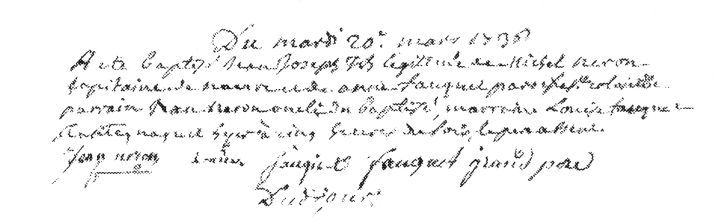 Du mardi 20e. mars 1736
A eté baptisé Jean Joseph fils légitime de Michel neron
Capitaine de navire et de anne fauquet
parrain Jean neron oncle du baptisé, marraine Louise fauquet
tante, naquit hyer à cinq heures du soir, le pere absent.
Jean neron fauquet fauquet grand pere